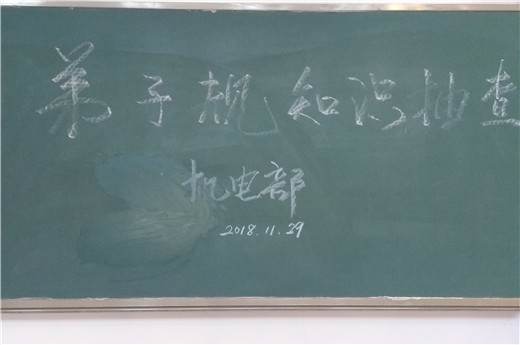 弟子规知识抽查
机电部
2018.11.29